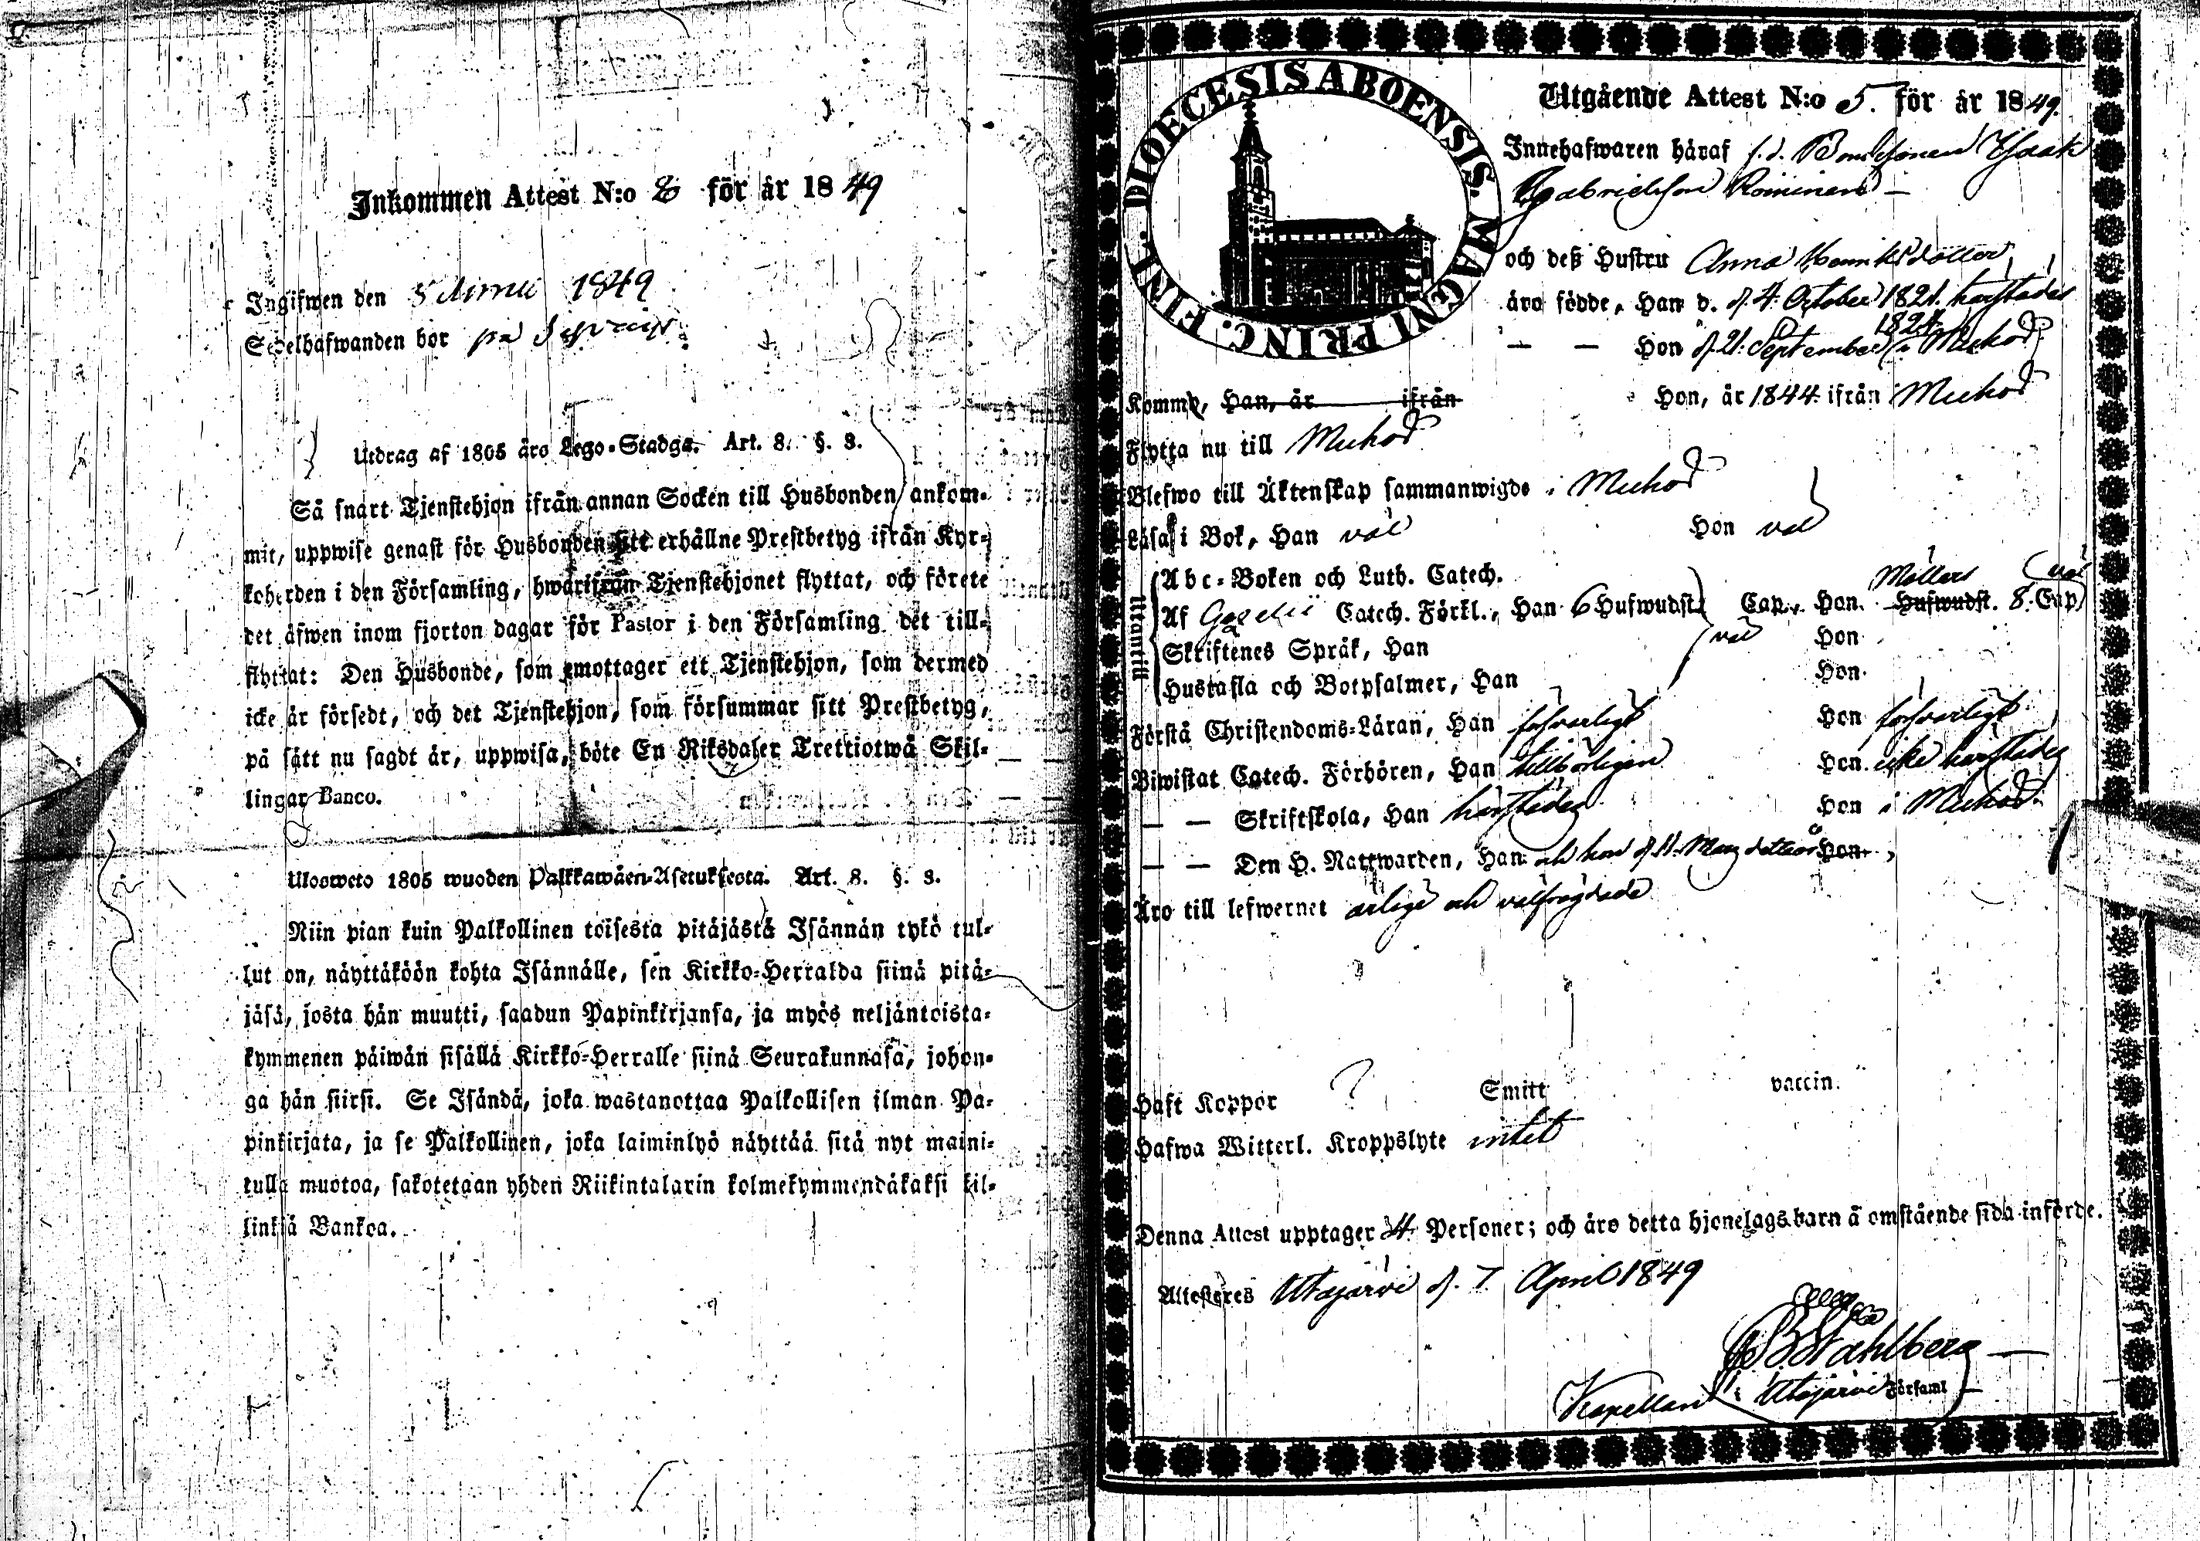 Inkommen Attest N:o 8 för år 1849
Ingifwen den 5 1849
Sedelhafwanden bor på
Utdrag af 1805 års Lego-Stadga. Art. 8. §. 3.
Så snart Tjenstehjon ifrån annan Socken till Husbonden ankom-
mit, uppwise genast för Husbonden sitt erhållne Prestbetyg ifrån Kyr-
koherden i den Församling, hwarifrån Tjenstehjonet flyttat, och förete
det äfwen inom fjorton dagar för Pastor i den Församling det till-
flyttat: Den Husbonde, som emottager ett Tjenstehjon, som dermed
icke är försedt, och det Tjenstehjon, som försummar sitt Prestbetyg,
på sätt nu sagdt är, uppwisa, böte En Riksdaler Trettiotwå Skil-
lingar Banco.
Ulosweto 1805 wuoden Palkkawäen-Asetuksesta. Art. 8. §. 3.
Niin pian kuin Palkollinen toisesta pitäjästä Isännän tykö tul-
lut on, näyttäköön kohta Isännälle, sen Kirkko-Herralda siinä pitä-
jäsä, josta hän muutti, saadun Papinkirjansa, ja myös neljäntoista-
kymmenen päiwän sisällä Kirkko-Herralle siinä Seurakunnasa, johon-
ga hän siirsi. Se Isändä, joka wastanottaa Palkollisen ilman Pa-
pinkirjata, ja se Palkollinen, joka laiminlyö näyttää sitä nyt maini-
tulla muotoa, sakotetaan yhden Riikintalarin kolmekymmendäkaksi kil-
linkiä Bankoa.
DIOECESIS ABOENSIS. MAGNI PRINC. FINL.
Utgående Attest N:o 5. för år 1849.
Innehafwaren häraf f.d. Bondesonen Isaak
Gabrielsson Roininen
och deß Hustru Anna Henriksdotter
äro födde, Han d. 4 October 1821. härstädes
— — Hon d. 21. September 1824 i Muhos
Komme, Han, år ifrån Hon, år 1844 ifrån Muhos
Flytta nu till Muhos
Blefwo till Äktenskap sammanwigde i Muhos
Läsa i Bok, Han väl Hon väl
Utantill
Abc-Boken och Luth. Catech. Möllers väl
Af Gezelii Catech. Förkl., Han 6 Hufwudst. Cap., Hon Hufwudst. 8. Cap.
Skriftenes Språk, Han väl Hon
Hustafla och Botpsalmer, Han Hon
Förstå Christendoms-Läran, Han försvarligt Hon försvarligt
Biwistat Catech. Förhören, Han tillbörligen Hon icke härstädes
— — Skriftskola, Han härstädes Hon i Muhos
— — Den H. Nattwarden, Han och hon d. 11. Mars detta år Hon
Äro till lefwernet ärlige och välfrägdade
Haft Koppor ? Smitt vaccin.
Hafwa Witterl. Kroppslyte intet
Denna Attest upptager 4 Personer; och äro detta hjonelags barn å omstående sida införde.
Attesteres Utajärvi d. 7 April 1849
Stahlberg
Kapellan i Utajärvi Församl